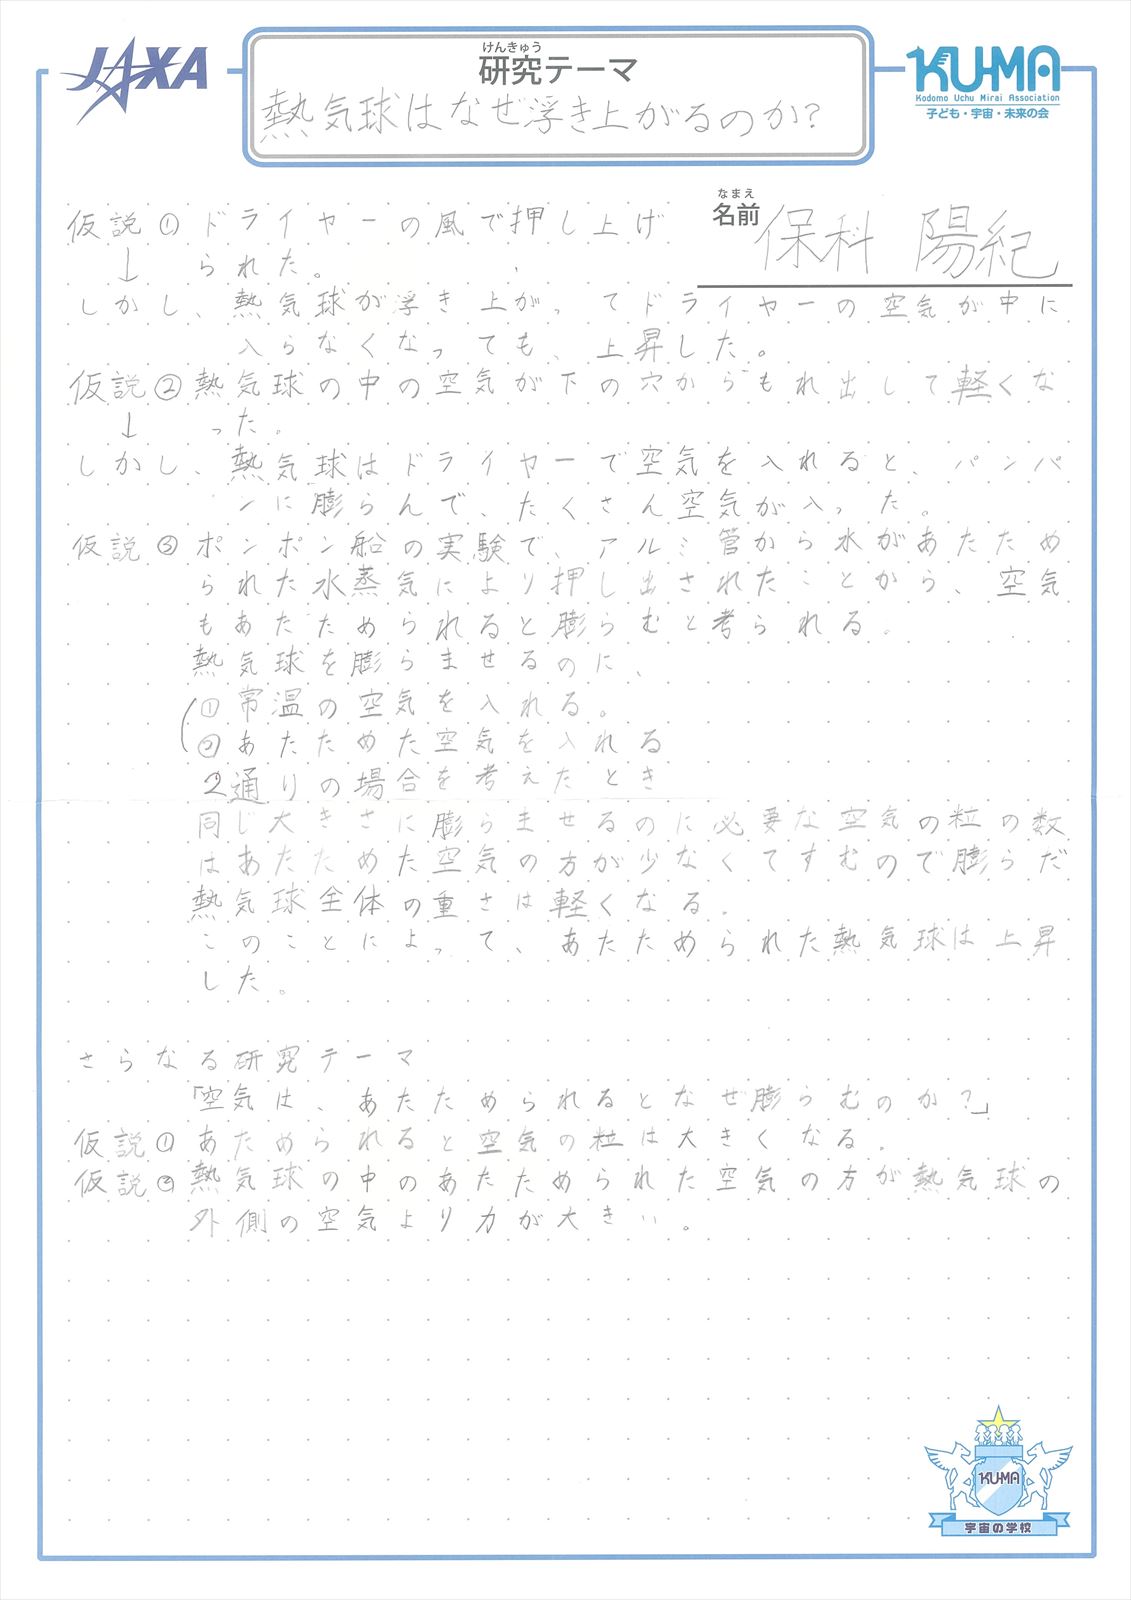 JAXA
けんきゅう
研究テーマ
KU-MA
Kodomo Uchu Mirai Association
子ども・宇宙・未来の会
熱気球はなぜ浮き上がるのか?
なまえ
名前
保科 陽紀
仮説①ドライヤーの風で押し上げ
↓ られた。
しかし、熱気球が浮き上がってドライヤーの空気が中に
入らなくなっても、上昇した。
仮説②熱気球の中の空気が下の穴からもれ出して軽くな
↓ った。
しかし、熱気球はドライヤーで空気を入れると、パンパ
ンに膨らんで、たくさん空気が入った。
仮説③ポンポン船の実験で、アルミ管から水があたため
られた水蒸気により押し出されたことから、空気
もあたためられると膨らむと考られる。
熱気球を膨らませるのに、
①常温の空気を入れる。
②あたためた空気を入れる
2通りの場合を考えたとき
同じ大きさに膨らませるのに必要な空気の粒の数
はあたためた空気の方が少なくてすむので膨らだ
熱気球全体の重さは軽くなる。
このことによって、あたためられた熱気球は上昇
した。
さらなる研究テーマ
「空気は、あたためられるとなぜ膨らむのか?」
仮説①あためられると空気の粒は大きくなる。
仮説②熱気球の中のあたためられた空気の方が熱気球の
外側の空気より力が大きい。
KU-MA
宇宙の学校